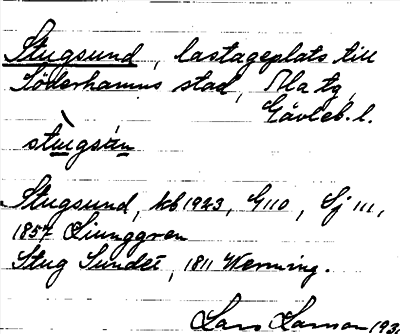 Stugsund, lastageplats till
Söderhamns stad, Ala tg,
Gävleb. l.
stùgsún
Stugsund, kb 1923, G 110, Sj 111,
1857 Ljunggren
Stug Sundet, 1811 Wenning.
Lars Larson 193